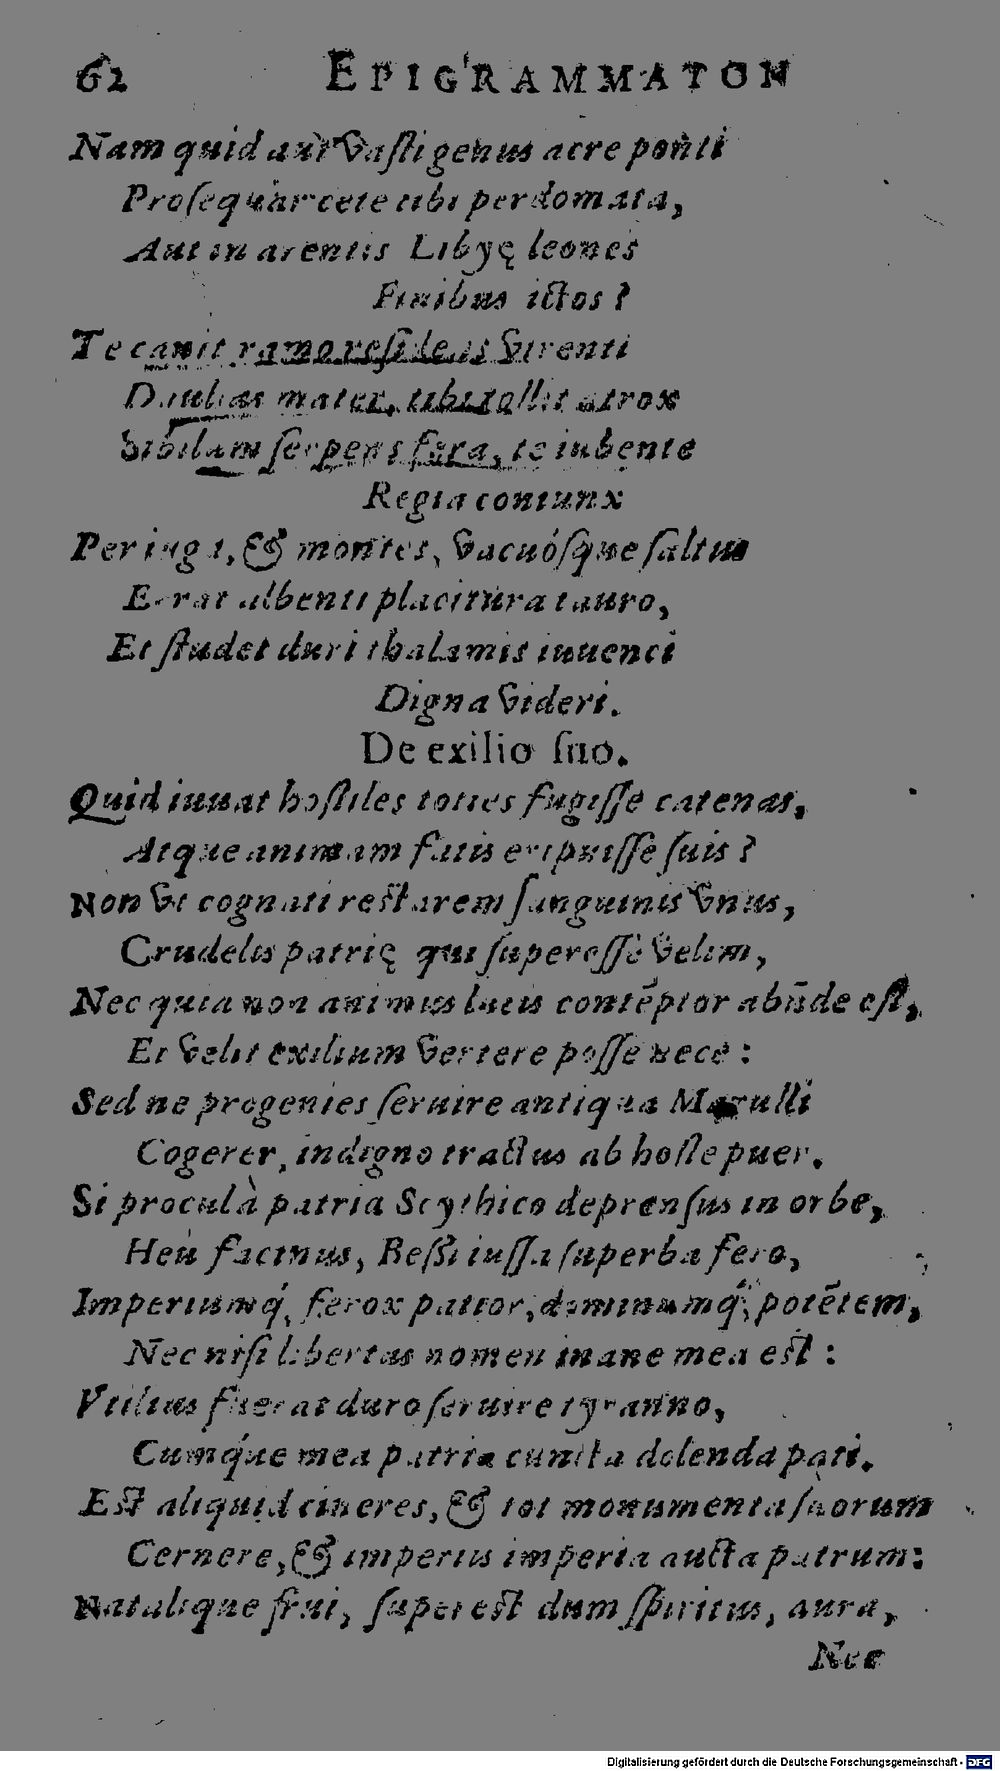 62 EPIGRAMMATON
Nam quid aut vasti genus acre ponti
Prosequar cete tibi perdomata,
Aut in arentis Libyę leones
Finibus ictos?
Te canit ramo residens virenti
Daulias mater, tibi tollit atrox
Sibilam serpens fera, te iubente
Regia coniunx
Per iuga, & montes, vacuósque saltus
Errat albenti placitura tauro,
Et studet duri thalamis iuuenci
Digna videri.
De exilio suo.
Quid iuuat hostiles toties fugisse catenas,
Atque animam fatis eripuisse suis?
Non vt cognati restarem sanguinis vnus,
Crudelis patrię qui superesse velim,
Nec quia non animus lucis contẽptor abũde est,
Et velit exilium vertere posse nece:
Sed ne progenies seruire antiqua Marulli
Cogerer, indigno tractus ab hoste puer.
Si procul à patria Scythico deprensus in orbe,
Heu facinus, Bessi iussa superba fero,
Imperiumq́; ferox patior, dominumq́; potẽtem,
Nec nisi libertas nomen inane mea est:
Vtilius fuerat duro seruire tyranno,
Cumq́ue mea patria cuncta dolenda pati.
Est aliquid cineres, & tot monumenta suorum
Cernere, & imperiis imperia aucta patrum:
Natalique frui, superest dum spiritus, aura,
Nec
Digitalisierung gefördert durch die Deutsche Forschungsgemeinschaft - DFG